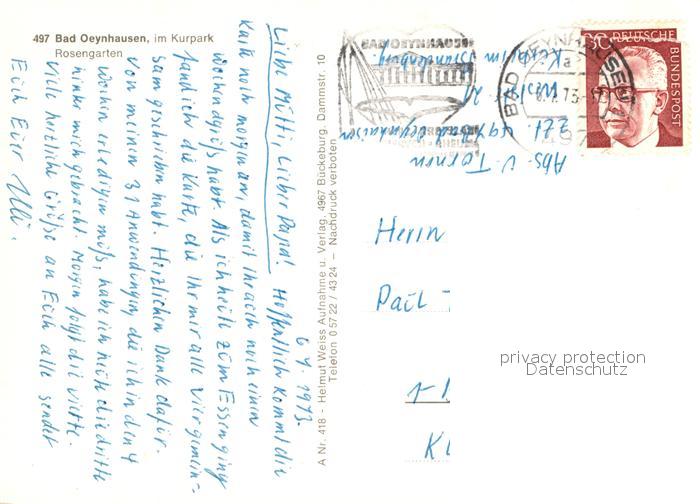 497 Bad Oeynhausen, im Kurpark
Rosengarten
6.4.1973.
Liebe Mutti, Lieber Papa! Hoffentlich kommt die
Karte nur morgen an, damit ihr auch noch einen
Wochendgrüß habt. Als ich heute zum Essen ging
fand ich die Karte, die Ihr mir alle vier gemein=
sam geschrieben habt. Herzlichen Dank dafür.
Von meinen 31 Anwendungen, die ich in den 4
Wochen erledigen müß, habe ich heute die dritte
hinter mich gebracht. Morgen folgt die vierte.
Viele herzliche Grüße an Euch alle sendet
Euch Eüer Ulli.
A Nr. 418 - Helmut Weiss Aufnahme u. Verlag, 4967 Bückeburg, Dammstr. 10
Telefon 0 57 22 / 43 24 — Nachdruck verboten
Abs. U.
zzt. 497 Bad Oeynhausen
BAD OEYNHAUSEN
BAD OEYNHAUSEN
497
30
DEUTSCHE
BUNDESPOST
Herrn
Paul
privacy protection
Datenschutz